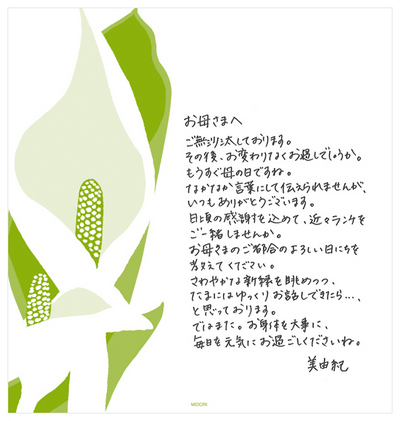 お母さまへ
ご無沙汰しております。
その後、お変わりなくお過しでしょうか。
もうすぐ母の日ですね。
なかなか言葉にして伝えられませんが、
いつもありがとうございます。
日頃の感謝を込めて、近々ランチを
ご一緒しませんか。
お母さまのご都合のよろしい日にちを
教えてください。
さわやかな新緑を眺めつつ、
たまにはゆっくりお話しできたら…、
と思っております。
ではまた。お身体を大事に、
毎日を元気にお過ごしくださいね。
美由紀
MIDORI